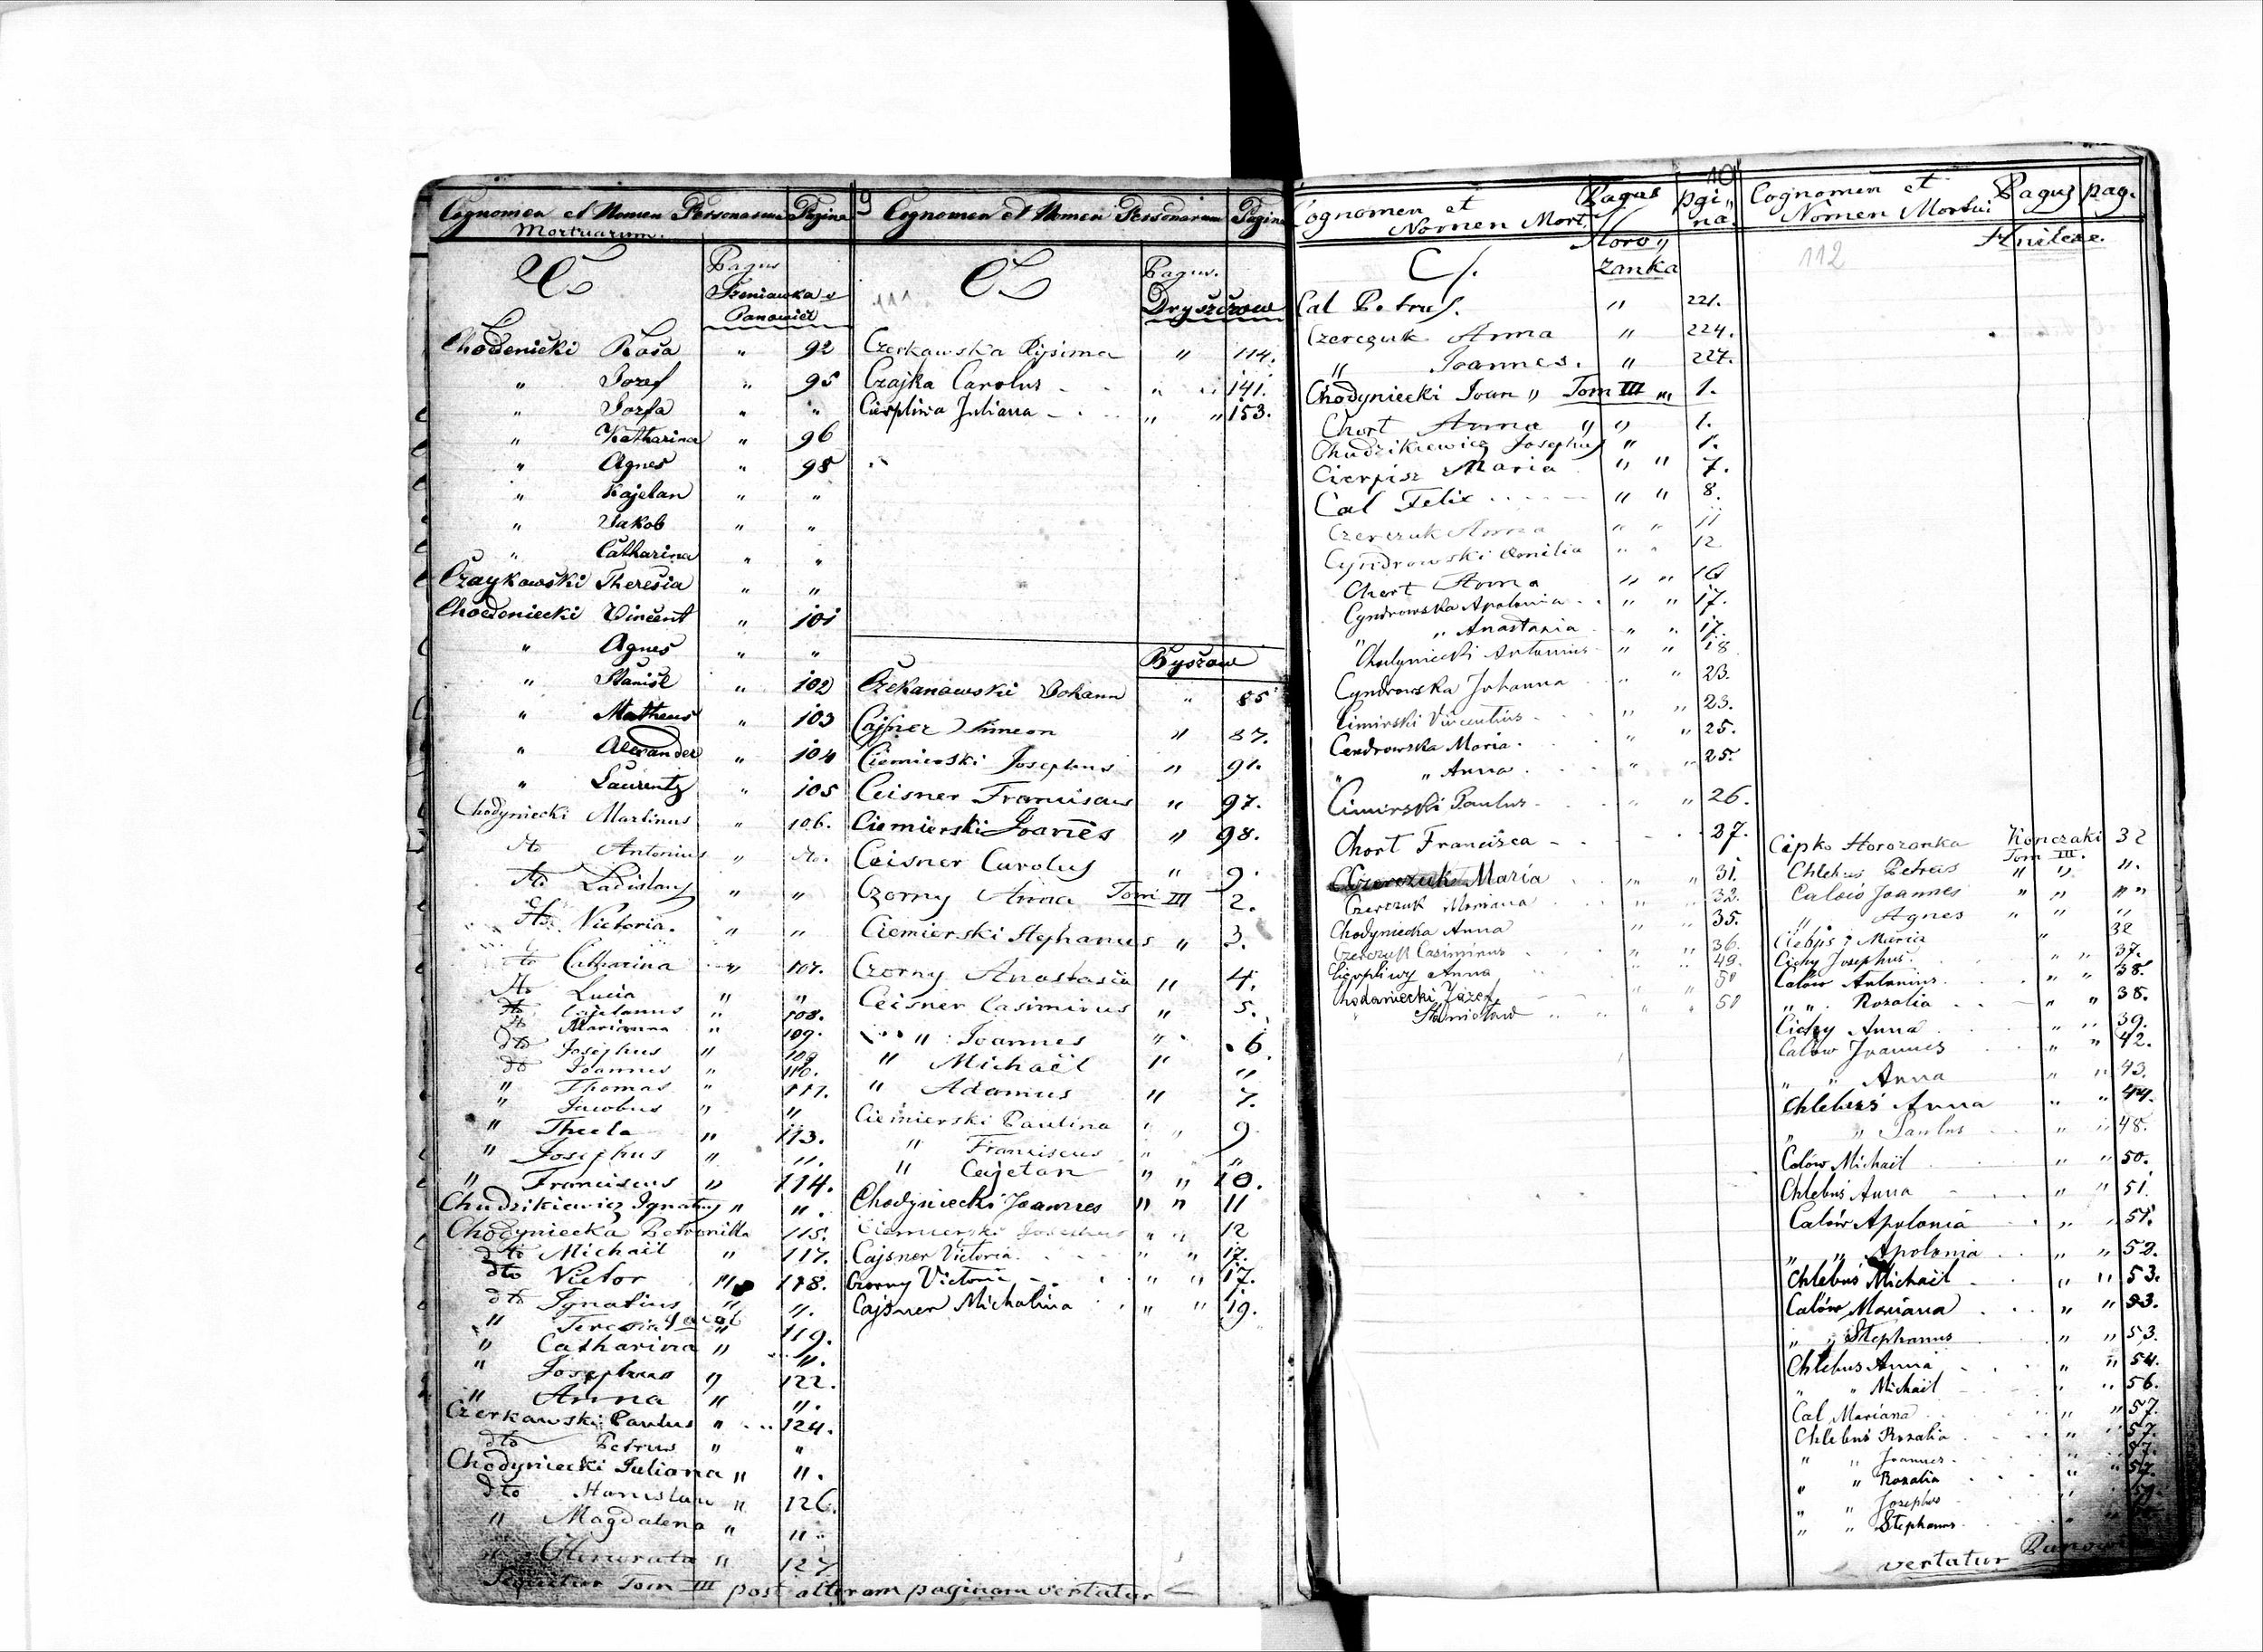 Cognomen et Nomen Personarum Pagina
Mortuarum.
C
Pagus
Panowice
Chodenicki Rosa " 92
" Jozef " 95
" Jozfa " "
" Katharina " 96
" Agnes " 98
" Kajetan " "
" Jakob " "
" Catharina " "
Czaykowski Theresia " "
Chodeniecki Vincent " 101
" Agnes " "
" Stanisl " 102
" Matheus " 103
" Alexander " 104
" Laurentz " 105
Chodyniecki Martinus " 106.
dto Antonius " dto.
dto Ladislaus " "
dto. Victoria. " "
dto Catharina " 107.
dto Lucia " "
dto Cajetanus " 108.
dto Marianna " 109.
dto Josephus " 109
dto Joannes " 110.
" Thomas " 111.
" Jacobus " "
" Thecla " 113.
" Josephus " ".
" Franciscus " 114.
Chudzikiewicz Ignatius " ".
Chodyniecka Petronilla 115.
dto Michaël " 117.
dto Victor " 118.
dto Ignatius " ".
" Teresia " 119.
" Catharina " ".
" Josephus " 122.
" Anna " ".
Czerkawski Paulus " 124.
dto Petrus " "
Chodyniecki Juliana " ".
dto Stanislaw " 126.
" Magdalena " "
Honorata " 127
Sequitur Tom III post alteram paginam vertatur
9 Cognomen et Nomen Personarum Pagina
C
111
Pagus.
Dryszczow
Czerkawska Rysima " 114.
Czajka Carolus - " " 141.
Cierpliwa Juliana - " " 153.
Byszow
Czekanowski Johann " 85
Cajsner Simeon " 87.
Ciemierski Josephus " 91.
Ceisner Franciscus " 97.
Ciemierski Joanes " 98.
Ceisner Carolus " 9.
Czorny Anna Tom III 2.
Ciemierski Stephanus " 3.
Czorny Anastasia " 4.
Ceisner Casimirus " 5.
" Joannes " 6.
" Michaël " "
" Adamus " 7.
Ciemierski Paulina " " 9.
" Franciscus " "
" Cajetan " " 10.
Chodyniecki Joannes " " 11
Ciemierski Josephus " " 12
Cajsner Victoria. " " 17.
Czorny Victoria - " " 17.
Cajsner Michalina " " 19.
10
Cognomen et Nomen Mort. Pagus pgi"na.
C.
Horo"
zanka
Cal Petrus. " 221.
Czerczuk Anna " 224.
" Joannes. " 227.
Chodyniecki Joan " Tom III " 1.
Chort Anna " " 1.
Chudzikiewicz Josephus " 1.
Cierpisz Maria " " 7.
Cal Felix " " 8.
Czerczuk Anna " " 11
Cyndrowski Emilia " " 12
Chort Anna " " 16
Cyndrowska Apolonia " " 17.
" Anastasia " " 17.
Chodyniecki Antonius " " 18
Cyndrowska Johanna " " 23.
Cimirski Vincentius " " 23.
Cendrowska Maria. " " 25.
" " Anna " " 25.
Cimirski Paulus " " 26.
Chort Francisca - 27.
Czerczuk Maria " " 31.
Czerczuk Mariana " " 32.
Chodyniecka Anna " " 35.
Czerczuk Casimirus " " 36.
Cierpliwy Anna " " 49.
Chodaniecki Józef " " 50
" Stanisław " " 50
Cognomen et Nomen Mortui Pagus pag.
112
Hnilcze.
Cipko Horozanka Konczaki 32
Tom III.
Chlebus Petrus " " ".
Calów Joannes " " " "
" Agnes " " "
Maria " 32
Cichy Josephus. " " 37.
Calów Antonius. " " 38.
" " Rozalia " " 38.
Cichy Anna " " 39.
Calów Joannes " " 42.
" " Anna " " 43.
Chlebuś Anna " " 44.
" " Paulus " " 48.
Calów Michaël " " 50.
Chlebuś Anna " " 51.
Calów Apolonia " " 51.
" " Apolonia " " 52.
Chlebuś Michaël " " 53.
Calów Mariana " " 53.
" " Stephanus " " 53.
Chlebus Anna " " 54.
" " Michaël " " 56.
Cal Mariana " " 57.
Chlebuś Rozalia " " 57.
" " Joannes " " 57.
" " Rozalia " " 57.
" " Josephus " "
" " Stephanus "
vertatur